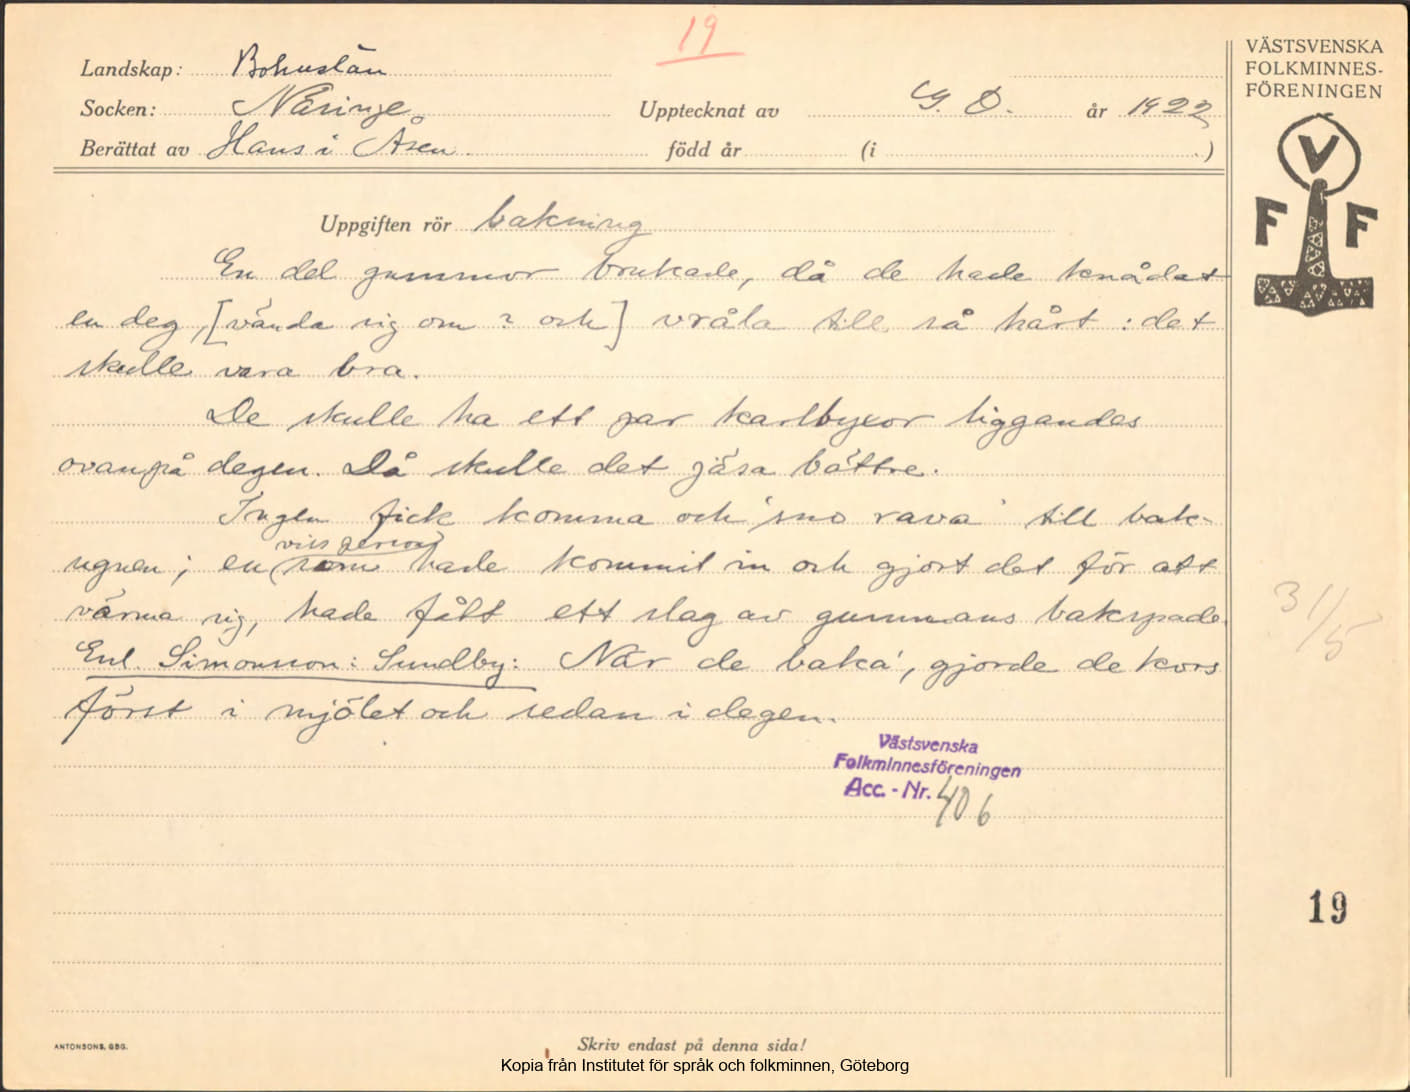 19
Landskap: Bohuslän
Socken: Näsinge
Upptecknat av G. D. år 1922
Berättat av Hans i Åsen. född år (i )
VÄSTSVENSKA
FOLKMINNES-
FÖRENINGEN
V
F F
Uppgiften rör bakning
En del gummor brukade, då de hade knådat
en deg, [vända sig om ? och] vråla till så hårt : det
skulle vara bra.
De skulle ha ett par karlbyxor liggandes
ovanpå degen. Då skulle det jäsa bättre.
Ingen fick komma och 'sno rava' till bak-
ugnen; en viss person som hade kommit in och gjort det för att
värma sig, hade fått ett slag av gummans bakspade.
Enl. Simonsson: Sundby: När de baka', gjorde de kors
först i mjölet och sedan i degen.
31/5
Västsvenska
Folkminnesföreningen
Acc. - Nr. 406
19
ANTONSONS, GBG.
Skriv endast på denna sida!
Kopia från Institutet för språk och folkminnen, Göteborg